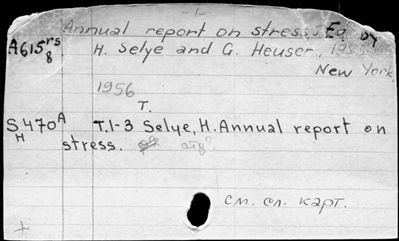 -1-
Annual report on stress. Ed. by
A615rs/8 H. Selye and G. Heuser, 1955-
New York,
1956
T.
S470A/H T.1-3 Selye, H. Annual report on
stress.
см. сл. карт.
+